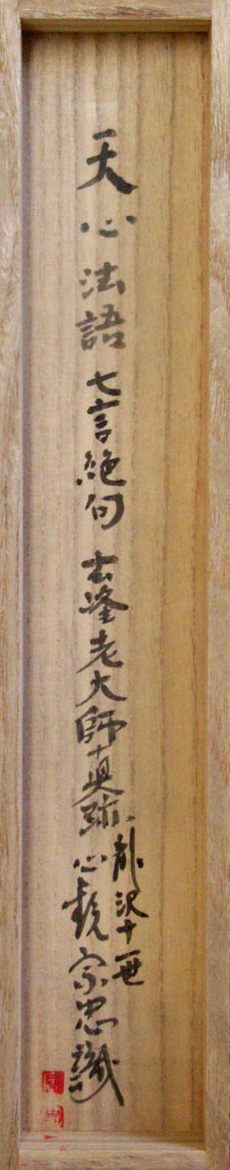 天心法語 七言絶句 玄峯老大師真跡
龍沢十一世
心鏡宗忠識